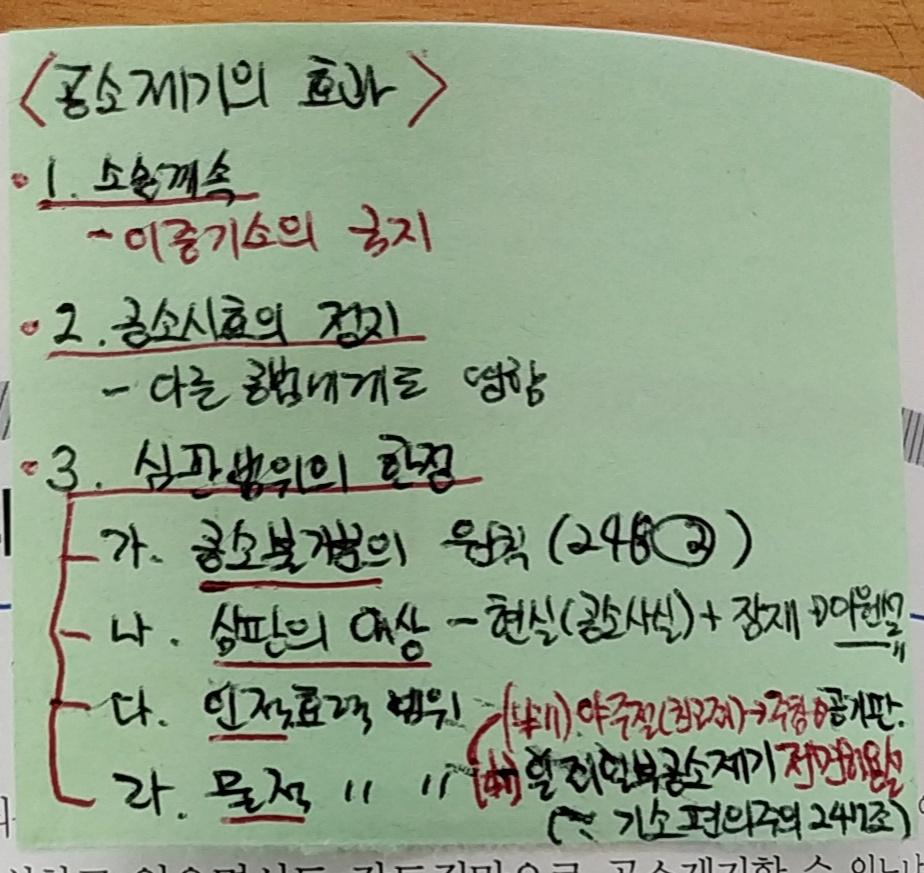 <공소제기의 효과>
1. 소송계속
- 이중기소의 금지
2. 공소시효의 정지
- 다른 공범에게도 영향
3. 심판범위의 한정
가. 공소불가분의 원칙 (248②)
나. 심판의 대상 - 현실(공소사실) + 잠재 이원설
다. 인적효력 범위
라. 물적 〃 〃 일죄일부공소제기 전면허용설
(∵ 기소편의주의 247조)